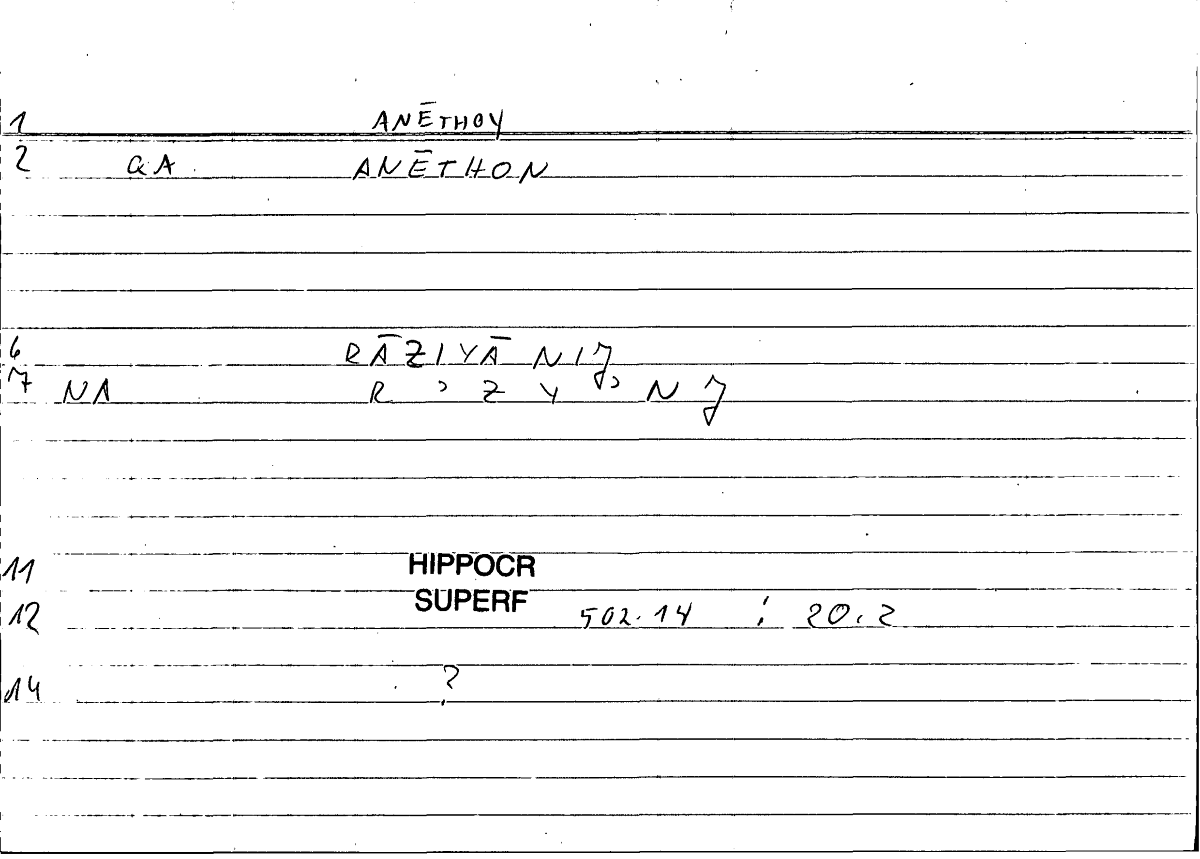 1 ANĒTHOY
2 QA ANĒTHON
6 RĀZIYĀNIJ
7 NA R ʾ Z Y ʾ N J
11 HIPPOCR
12 SUPERF 502.14 : 20.2
14 ?